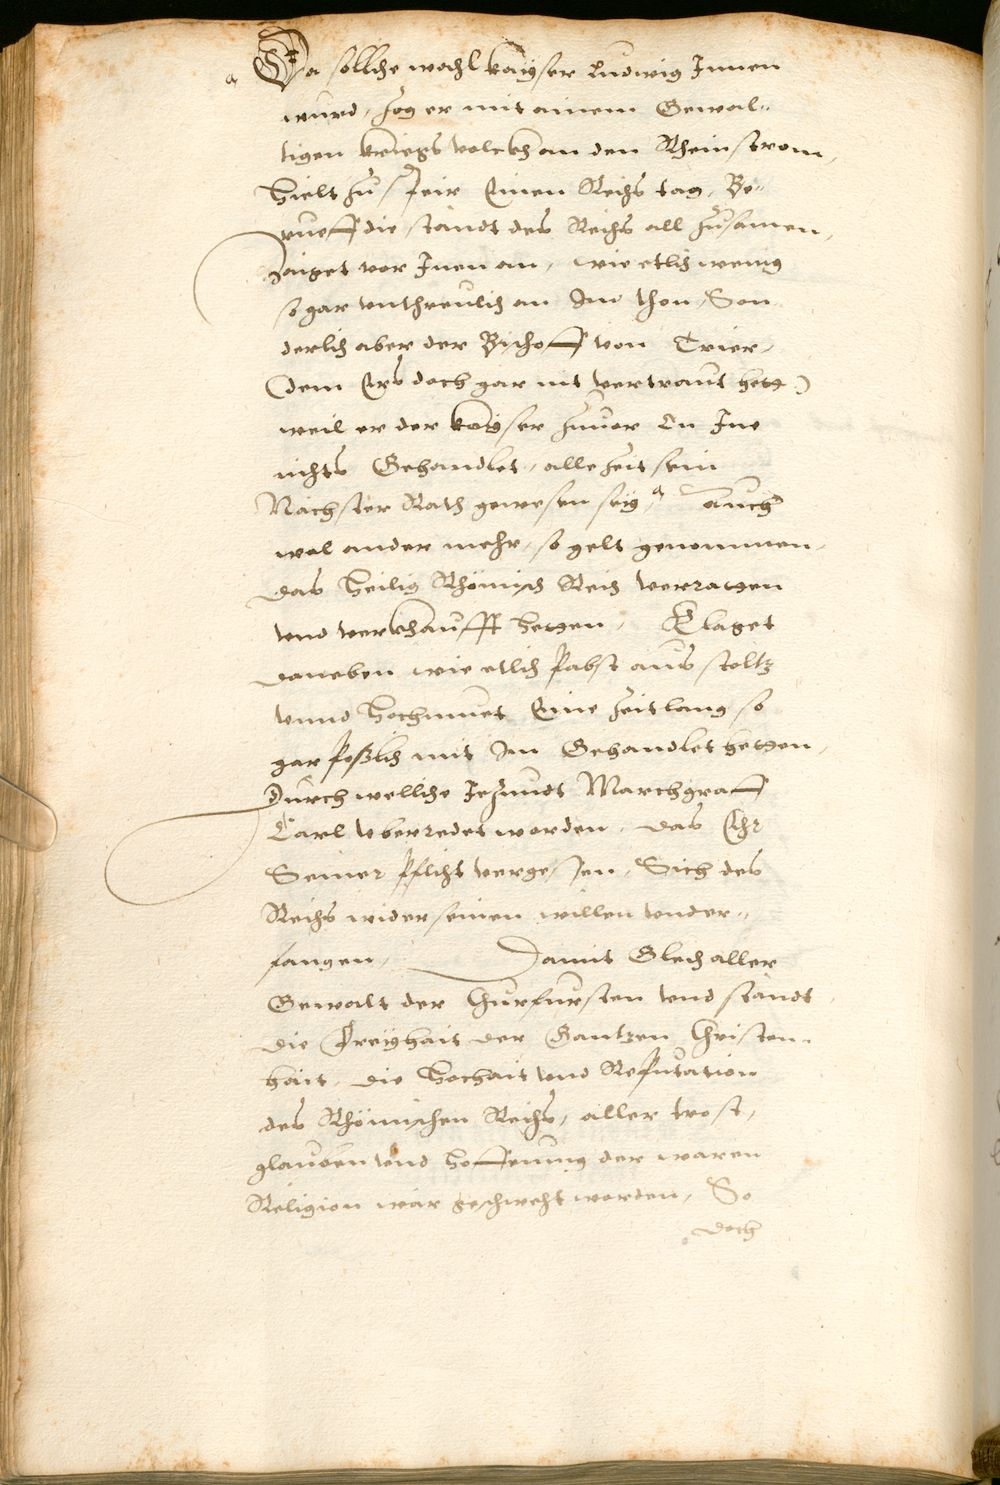 a Da sollche wahl kaÿser Ludwig Innen
wurd, zog er mit ainem Gewal„
tigen kriegs volckh an den Rheinstrom,
hielt zu Speir Einen Reichs tag, Be„
rueff die ständt des Reichs all zusamen,
Zaiget vor Inen an, wie etlich wenig
so gar vnthreulich an Im thon, Son
derlich aber der Bischoff von Trier,
(dem Ers doch gar nit vertraut hett)
weil er der kaÿser zuuor On Ine
nichts Gehandlet, alle Zeit sein
Nachster Rath gewesen seÿ, a auch
wol ander mehr, so gelt genommen,
das heilig Rhömisch Reich verraten
vnd verkhaufft hetten, Claget
daneben wie etlich Pabst aus stoltz
vnnd hochmuet Eine Zeitlang so
gar Poßlich mit Im Gehandlet hetten,
durch welliche Jezundt Marchgraff
Carl vberredet worden, das Ehr
Seiner Pflicht vergessen, Sich des
Reichs wider seinen willen vnder„
fangen, Damit Gleich aller
Gewalt der Churfursten vnd ständt,
die Freÿhait der Gantzen Christen„
hait, die hochait vnd Reputation
des Rhömischen Reichs, aller trost,
glauben vnd hoffnung der waren
Religion war geschwecht worden, So
doch